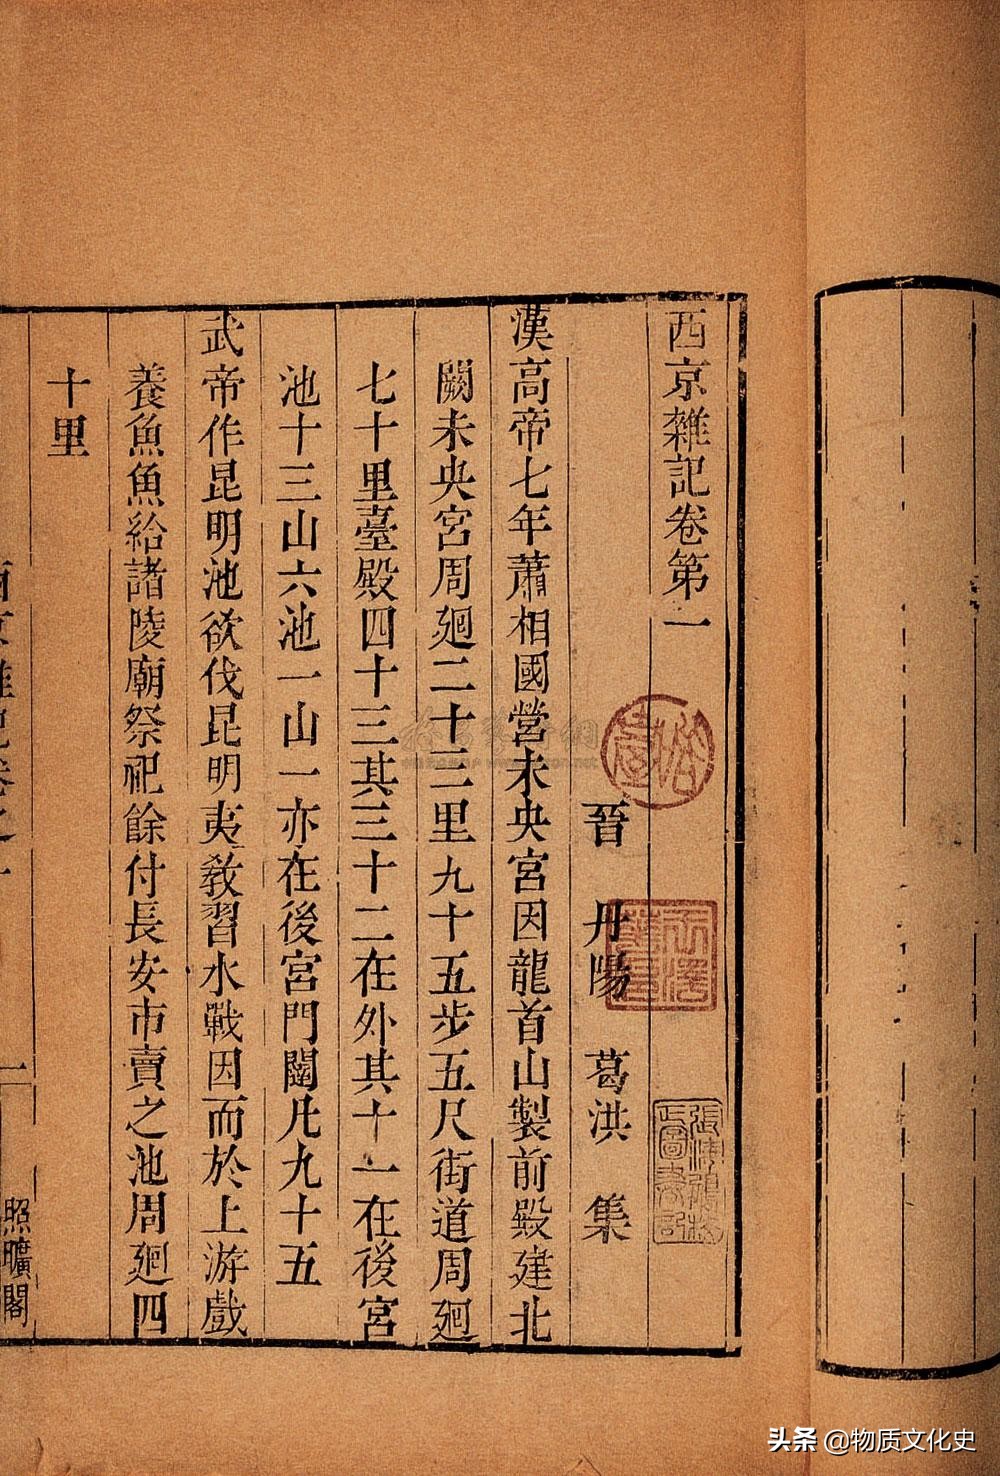 西京雜記卷第一
晉 丹陽 葛洪 集
漢高帝七年蕭相國營未央宮因龍首山製前殿建北
闕未央宮周廻二十三里九十五步五尺街道周廻
七十里臺殿四十三其三十二在外其十一在後宮
池十三山六池一山一亦在後宮門闥凡九十五
武帝作昆明池欲伐昆明夷教習水戰因而於上游戲
養魚魚給諸陵廟祭祀餘付長安市賣之池周廻四
十里
西京雜記卷之一
一
照曠閣
头条 @物质文化史